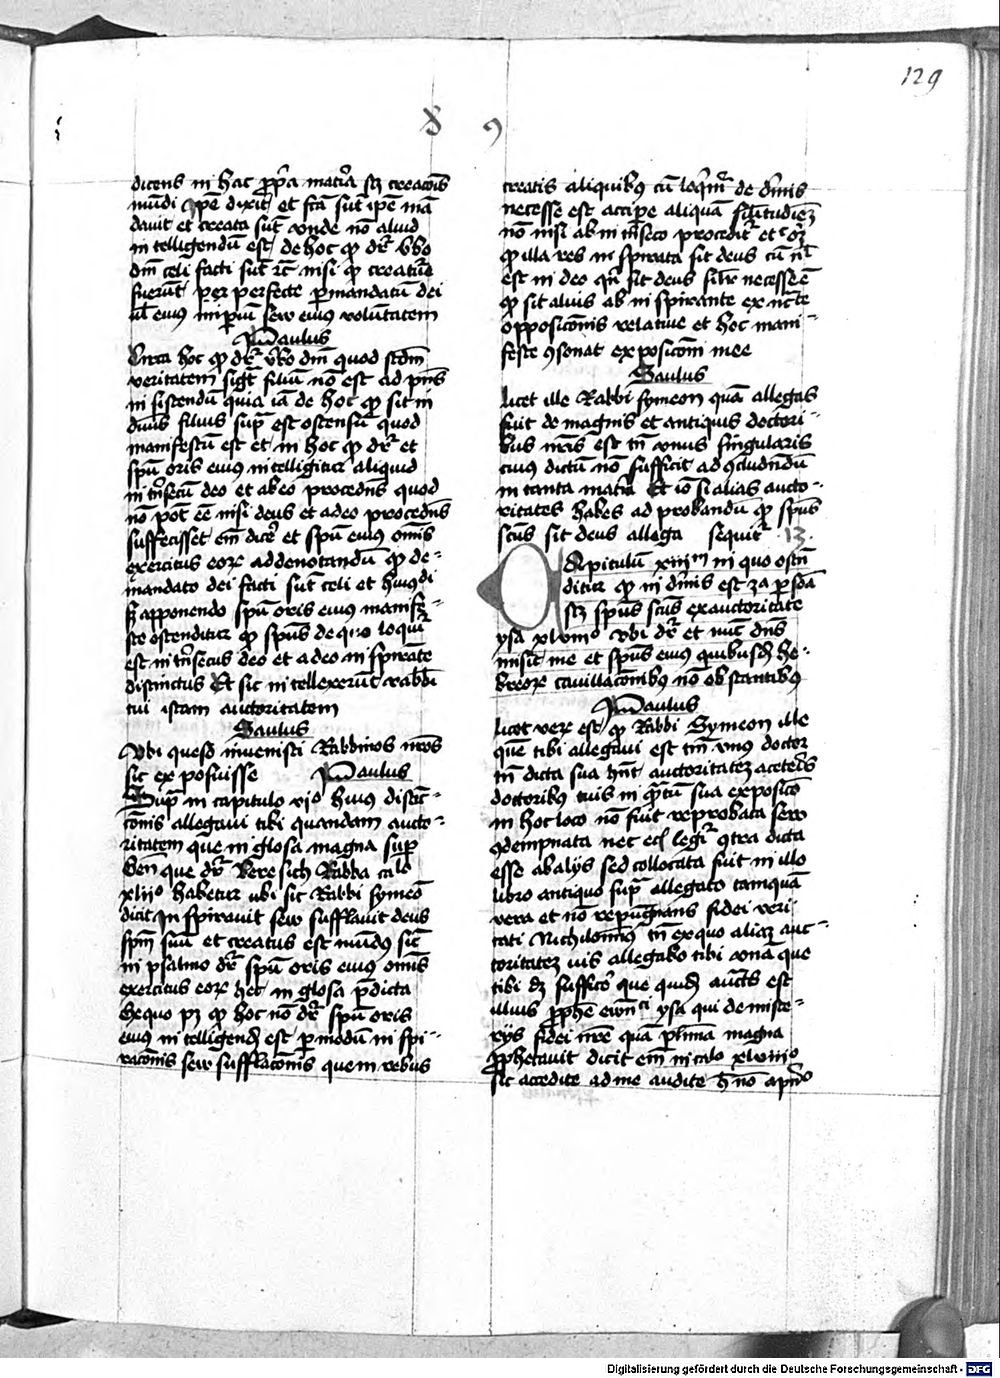 129
8 9
dicens in hac ꝓpͥa matͥa scꝫ creacōis
mūdi ipē dixit et fcā sūt ipē mā
dauit et creata sūt vnde nō aliud
in telligendū est de hoc ꝙ dr̄ v̄bo
dn̄i celi facti sūt rc̄ nisi ꝙ creature
fuerūt per perfecte ꝑ mandatū dei
ul̄ eiuꝰ imꝑiū seu eiuꝰ voluntatem
Paulus
Circa hoc ꝙ dr̄ v̄bo dn̄i quod scd̄m
veritatem sigͭ filiū nō est ad pn̄s
in sistendū quia iā de hoc ꝙ sit in
diuīs filius supͣ est ostensū quod
manifestū est et in hoc ꝙ dr̄ et
spū oris eiuꝰ intelligitur aliquid
intͥsecū deo et ab eo procedēs quod
nō pōt eē nisi deus et a deo procedēs
suffecisset em̄ dicē et spū eiuꝰ om̄is
exercitus eoꝝ ad denotandū ꝙ de-
mandato dei facti sūt celi et huiꝰdi
sꝫ apponendo spū oris eiuꝰ manife
ste ostenditur ꝙ spūs de quo loquit̄
est intͥsecus deo et a deo in spirāte
distinctus Et sic in tellexerūt rabbi
tui istam auctoritatem
Saulus
Vbi queso inuenisti Rabbinos nr̄os
sic exposuisse Paulus
Supͣ in capitulo vjͦ huiꝰ distīc-
cōnis allegaui tibi quandam aucto-
ritatem que in glosa magna sup̄
Gen̄ que dr̄ Beresich Rabba caͦ
xliijͦ habetur ubi sic Rabbi symeō
dicit In spirauit seu sufflauit deus
spm̄ suū et creatus est mūdꝰ sic̄
in psalmo dr̄ spū oris eiuꝰ om̄is
exercitus eoꝝ hec in glosa p̄dicta
Ex quo pꝫ ꝙ hoc nō dr̄ spū oris
eiuꝰ in telligend est ꝑ modū in spi-
racōnis seu sufflacōnis que in rebus
creatis aliquibꝰ cū loqͥm̄ de diuīs
necesse est accipe aliquā silitudīeꝫ
nō nisi ab intͥnseco procedit̄ et
ꝙ illa res in spirata sit deus cū
est in deo qͥn sit deus silr̄ necesse ē
ꝙ sit aliuis ab in spirante ex
opposicōnis relatiue et hoc mani-
feste ꝯsonat exposicōni mee
Saulus
Licet ille Rabbi symeon quā allegas
fuit de magnis et antiquis doctori-
bus nr̄is est tn̄ vnus singularis
cuiꝰ dictū nō sufficit ad ꝯcludēdū
in tanta matͥa Et iō si alias aucto-
ritates habes ad probandū ꝙ spūs
scūs sit deus allega sequit̄ 13.
Capitulū xiijm̄ in quo ostē
ditur ꝙ in diuīs est ꝫa ꝑsōa
scꝫ spūs scūs ex auctoritate
ysa xlviijͦ vbi dr̄ et nūc dn̄s
misit me et spūs eiuꝰ quibusd he-
breoꝝ cauillacōnibꝰ nō obstantibꝰ
Paulus
Licet veꝝ est ꝙ Rabbi Symeon ille
quē tibi allegaui est tm̄ vnuꝰ doctor
tn̄ dicta sua hn̄t auctoritateꝫ a ceteīs
doctoribꝰ tuis in qͣtū sua exposicō
in hoc loco nō fuit reprobata seu
ꝯdempnata nec ecī legit̄ ꝯtra dicta
esse ab alijs sed collocata fuit in illo
libro antiquo supͣ allegato tamquā
vera et nō repugnans fidei veri
tati Nichilomiꝰ tn̄ ex quo aliaꝫ auc-
toritateꝫ uis allegabo tibi vonā que
tibi dꝫ sufficē que quid auctīs est
illius ꝓphē ysa qui de miste-
rijs fidei nr̄e quā plīma magna
ꝓphetauit dicit em̄ in caͦlo xlviijͦ
sic accedite ad me audite h̄ nō a pn̄ͦ
Digitalisierung gefördert durch die Deutsche Forschungsgemeinschaft - DFG